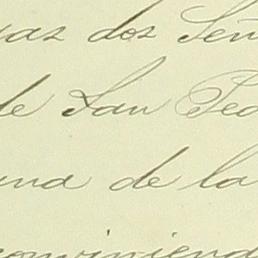 dos Señ
de San Ped
una de la
conviniend